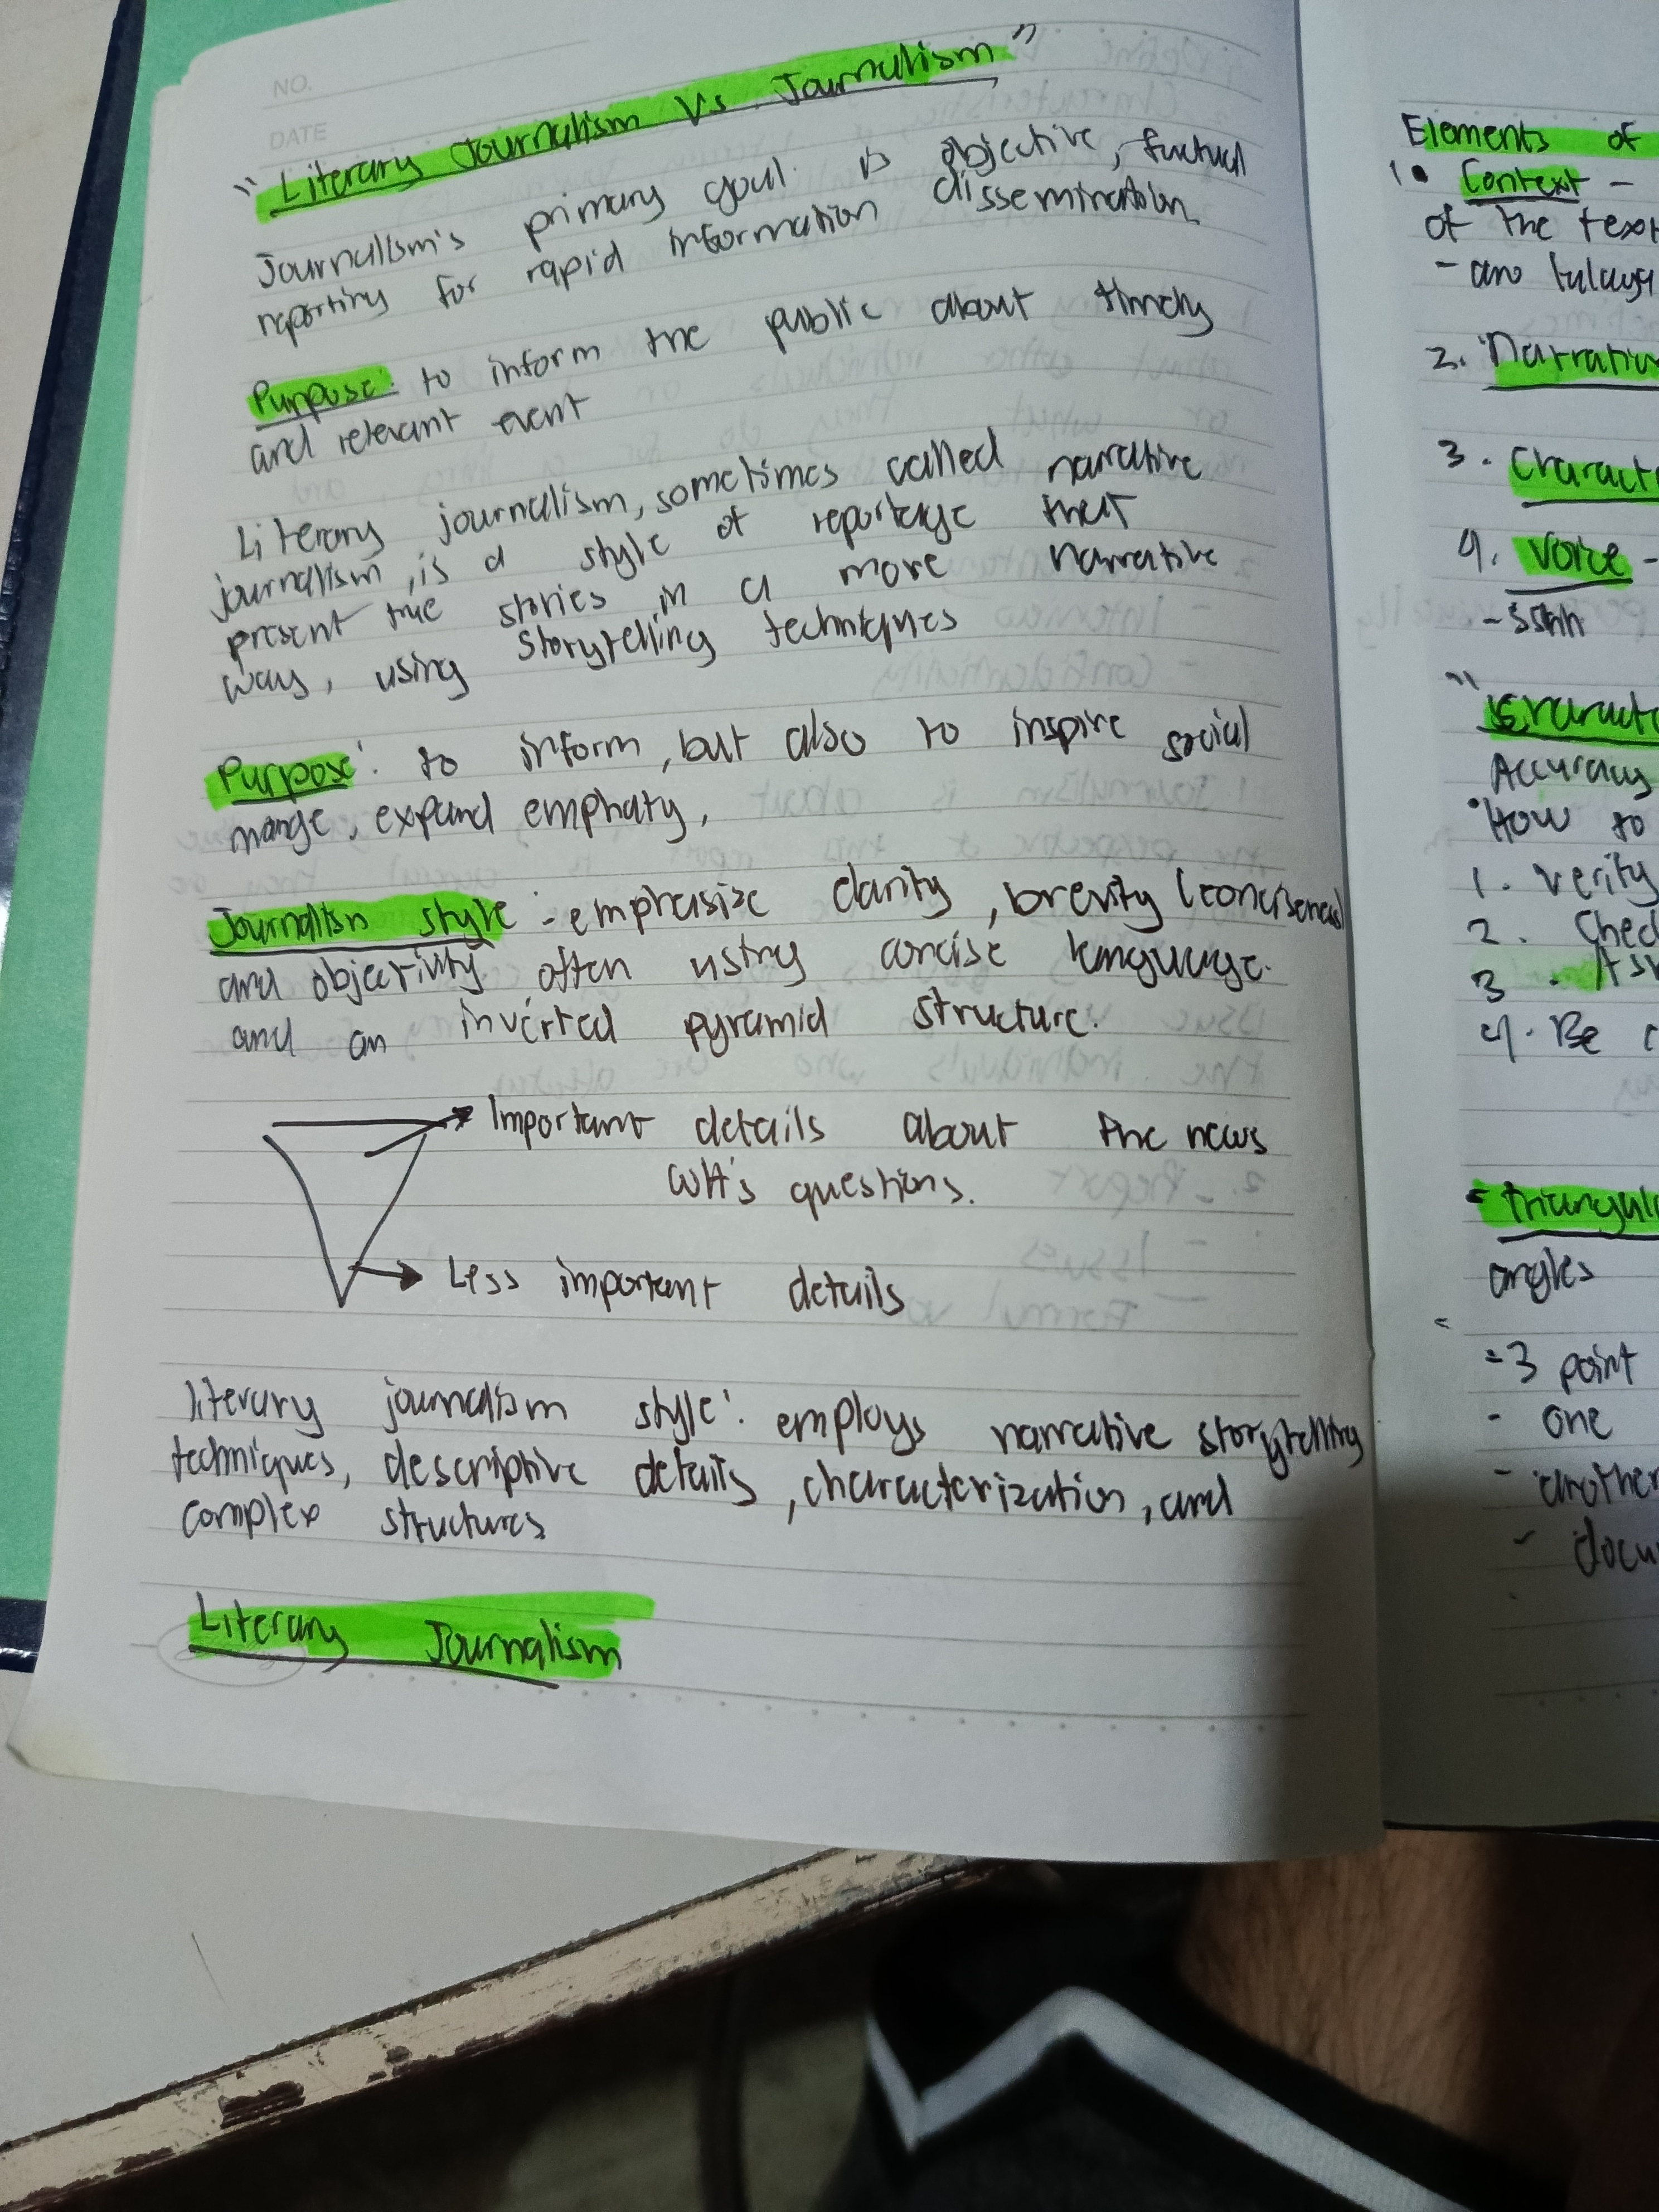 NO.
DATE
"Literary Journalism Vs Journalism"
Journalism's primary goal is objective, factual
reporting for rapid information dissemination.
Purpose: to inform the public about timely
and relevant event
Literary journalism, sometimes called narrative
journalism, is a style of reportage that
present true stories in a more narrative
way, using storytelling techniques
Purpose: to inform, but also to inspire social
expand emphaty,
Journalism style: - emphasize clarity, brevity (conciseness)
and objectivity often using concise language.
and an inverted pyramid structure.
Important details about the news
WH's questions.
Less important details
literary journalism style: employs narrative storytelling
techniques, descriptive details, characterization, and
complex structures
Literary Journalism
Elements of
1. Context -
of the text
- ano
2. Narrativ
3. Charact
4. Voice -
Accuracy
How to
1. Verify
2. Chec
3.
4. Be
- triangul
angles
- 3 point
- one
- another
- docu